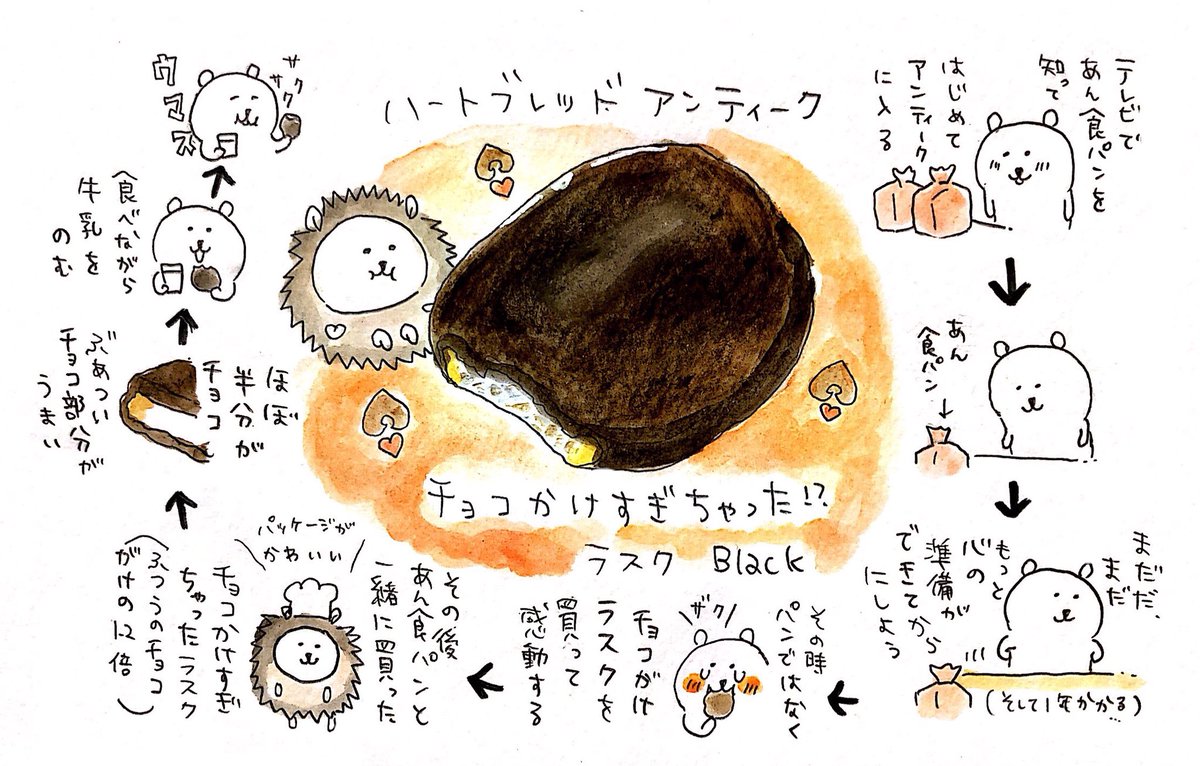 ハートブレッド アンティーク
チョコかけすぎちゃった!?
ラスク Black
テレビで
あん食パンを
知って
はじめて
アンティーク
に入る
あん
食パン
まだだ、
まだ
もっと
心の
準備が
できてから
にしよう
(そして1年かかる)
その時
パンではなく
チョコがけ
ラスクを
買って
感動する
ザク
その後
あん食パンと
一緒に買った
チョコかけすぎ
ちゃったラスク
(ふつうのチョコ
がけの12倍)
パッケージが
かわいい
ほぼ
半分が
チョコ
ぶあつい
チョコ部分が
うまい
食べながら
牛乳を
のむ
サク
サク
ウマス